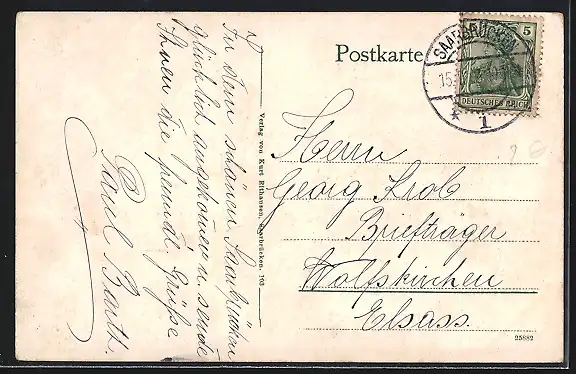 In dem schönen Saarbrücken
glücklich angekommen u. sende
Ihnen die freundl. Grüße
Paul Barth.
Verlag von Kurt Elthausen, Saarbrücken. 103
Postkarte
SAARBRÜCKEN
15
1
5
DEUTSCHES REICH
Herrn
Georg Krob
Briefträger
Wolfskirchen
Elsass.
25882